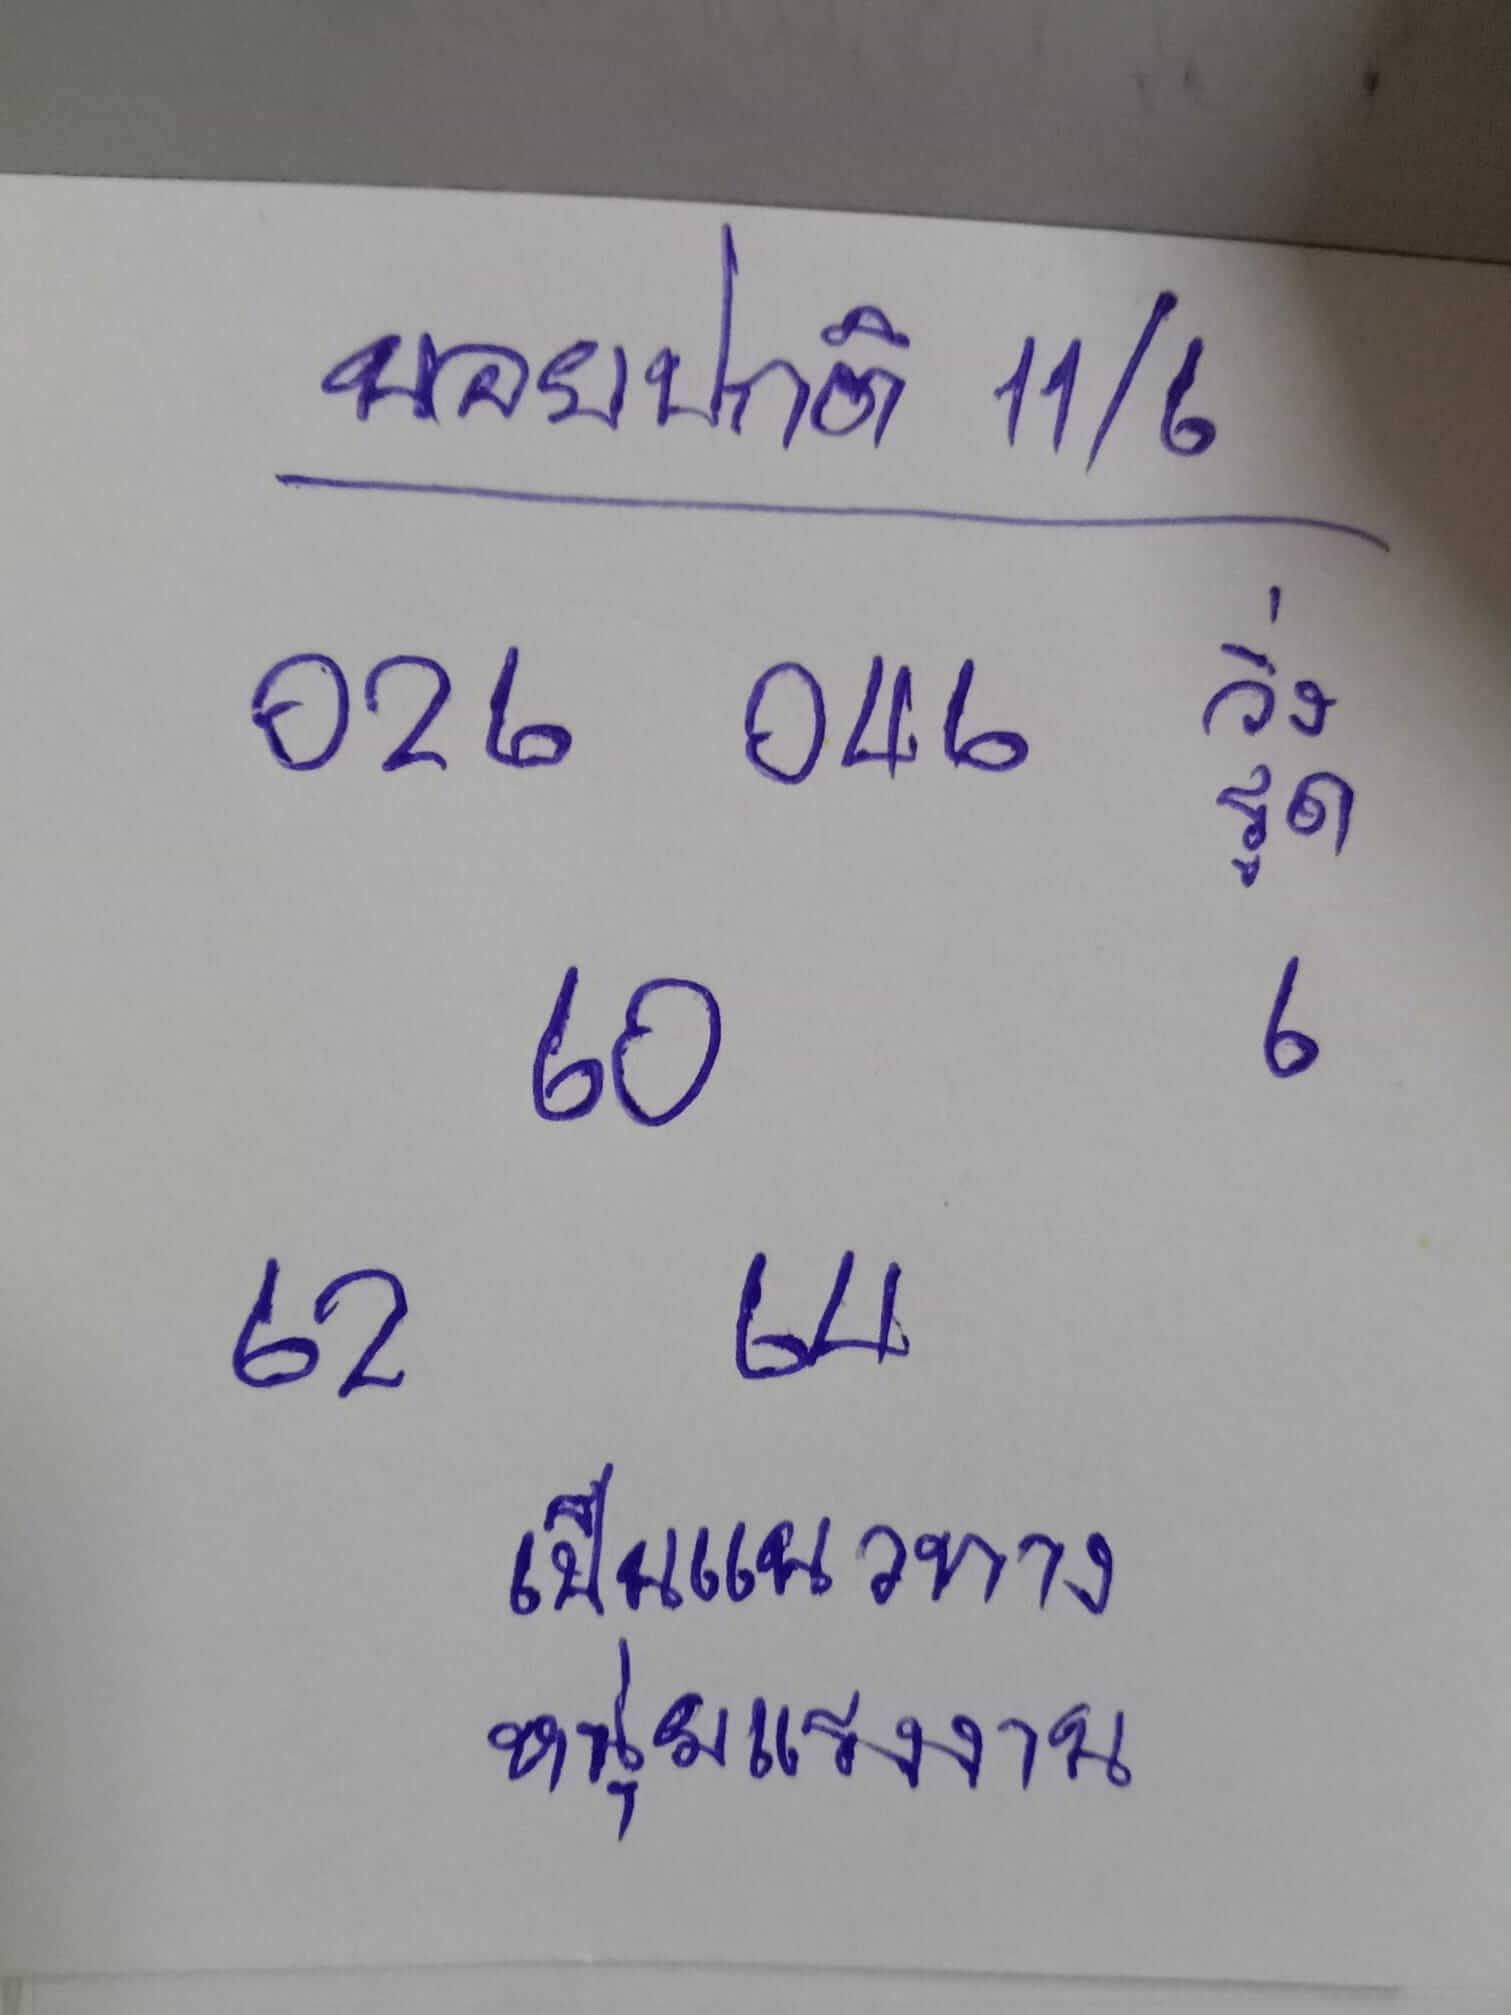 นอยปกติ 11/6
026 046 วิ่ง
รูด
60 6
62 64
เป็นแนวทาง
หนุ่มแรงงาน